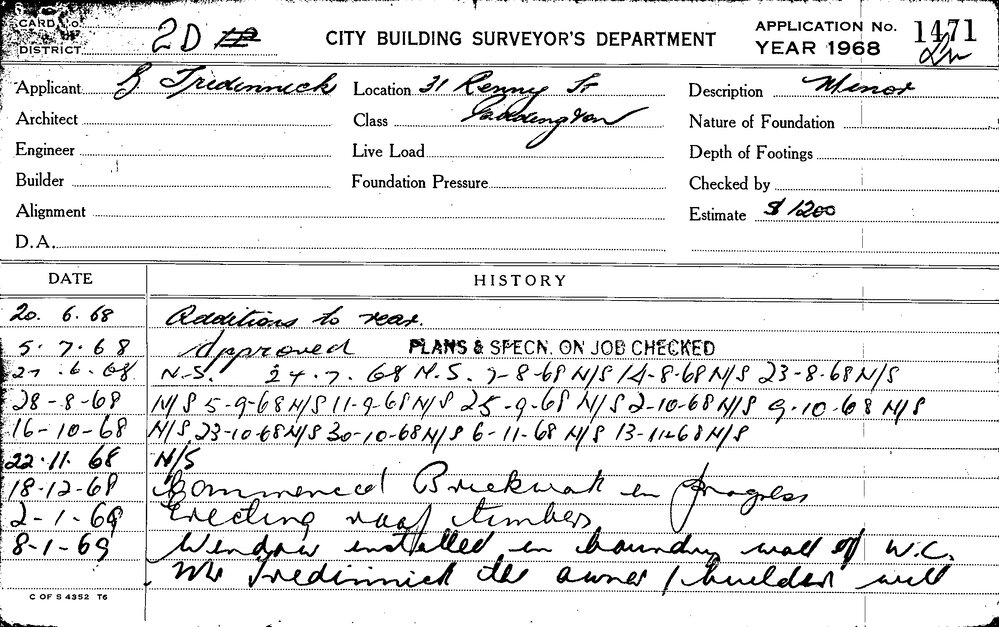 CARD No.
DISTRICT 2D
CITY BUILDING SURVEYOR'S DEPARTMENT
APPLICATION No. 1471
YEAR 1968
Applicant G Tredinnick Location 31 Renny St Description Minor
Architect Class Paddington Nature of Foundation
Engineer Live Load Depth of Footings
Builder Foundation Pressure Checked by
Alignment Estimate $1200
D.A.
DATE HISTORY
20. 6. 68 Additions to rear.
5. 7. 68 Approved PLANS & SPECN. ON JOB CHECKED
6. 68 N.S. 24. 7. 68 N.S. 7-8-68 N/S 14-8-68 N/S 23-8-68 N/S
28-8-68 N/S 5-9-68 N/S 11-9-68 N/S 25-9-68 N/S 2-10-68 N/S 9-10-68 N/S
16-10-68 N/S 23-10-68 N/S 30-10-68 N/S 6-11-68 N/S 13-11-68 N/S
22.11.68 N/S
18-12-68 Commenced Brickwork in progress
2-1-69 Erecting roof timbers
8-1-69 Window installed in boundry wall of W.C.
Mr Tredinnick the owner / builder will
C OF S 4352 T6